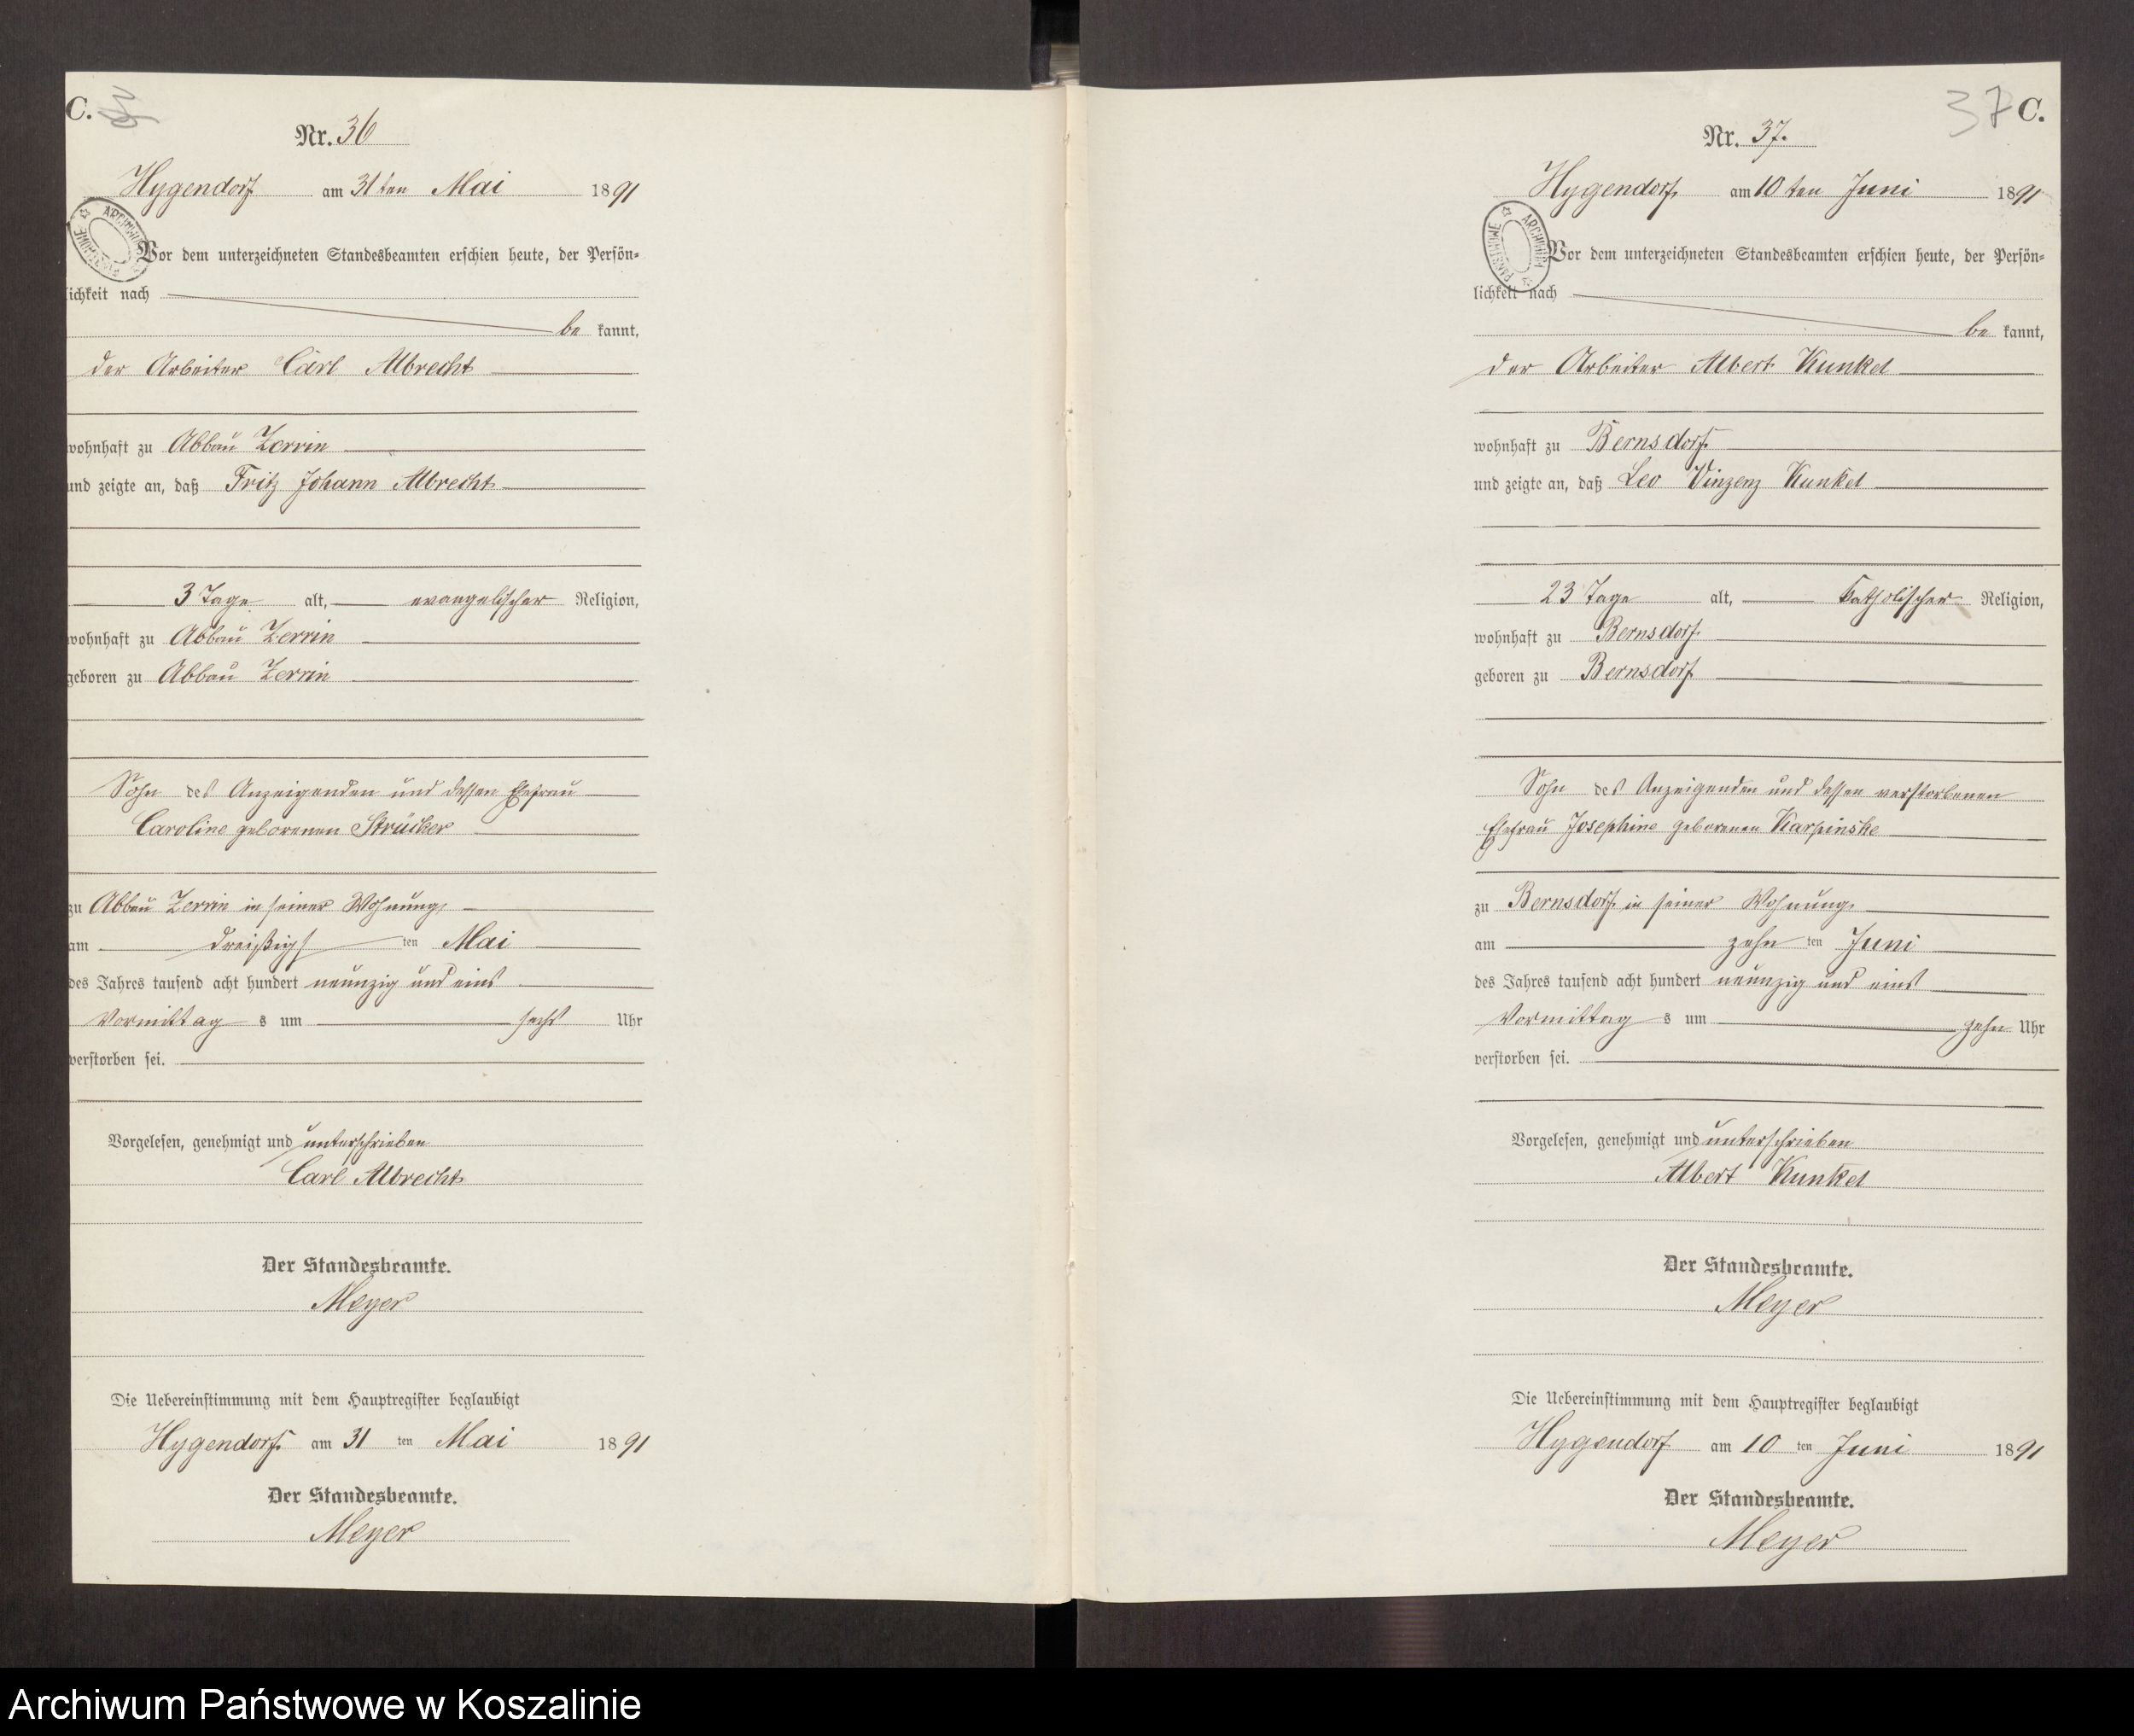 C.
Nr. 36
Hygendorf am 31ten Mai 1891
ARCHIWUM
Vor dem unterzeichneten Standesbeamten erschien heute, der Persön=
lichkeit nach
be kannt,
der Arbeiter Carl Albrecht
wohnhaft zu Abbau Zerrin
und zeigte an, daß Fritz Johann Albrecht
3 Tage alt, evangelischer Religion,
wohnhaft zu Abbau Zerrin
geboren zu Abbau Zerrin
Sohn des Anzeigenden und dessen Ehefrau
Caroline geborenen Strücker
zu Abbau Zerrin in seiner Wohnung,
am dreißigs ten Mai
des Jahres tausend acht hundert neunzig und eins
Vormittag s um sechs Uhr
verstorben sei.
Vorgelesen, genehmigt und unterschrieben
Carl Albrecht
Der Standesbeamte.
Meyer
Die Uebereinstimmung mit dem Hauptregister beglaubigt
Hygendorf am 31 ten Mai 1891
Der Standesbeamte.
Meyer
37 C.
Nr. 37.
Hygendorf, am 10 ten Juni 1891
ARCHIWUM PAŃSTWOWE
Vor dem unterzeichneten Standesbeamten erschien heute, der Persön=
lichkeit nach
be kannt,
der Arbeiter Albert Kunkel
wohnhaft zu Bernsdorf
und zeigte an, daß Leo Vinzenz Kunkel
23 Tage alt, katholischer Religion,
wohnhaft zu Bernsdorf
geboren zu Bernsdorf
Sohn des Anzeigenden und dessen verstorbenen
Ehefrau Josephine geborenen Karpinske
zu Bernsdorf in seiner Wohnung
am zehn ten Juni
des Jahres tausend acht hundert neunzig und eins
Vormittag s um zehn Uhr
verstorben sei.
Vorgelesen, genehmigt und unterschrieben
Albert Kunkel
Der Standesbeamte.
Meyer
Die Uebereinstimmung mit dem Hauptregister beglaubigt
Hygendorf am 10 ten Juni 1891
Der Standesbeamte.
Meyer
Archiwum Państwowe w Koszalinie